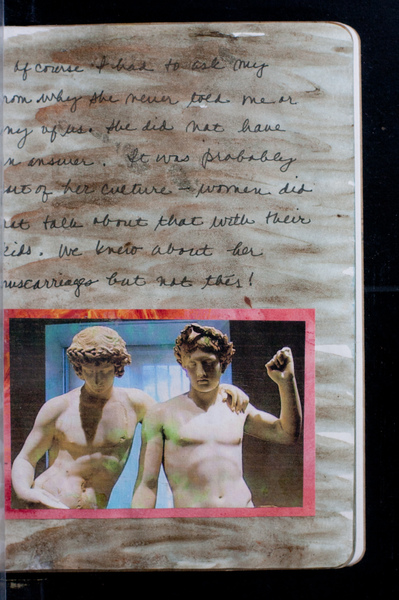 Of course I had to ask my
mom why she never told me or
any of us. She did not have
an answer. It was probably
part of her culture – women did
not talk about that with their
kids. We knew about her
miscarriages but not this!